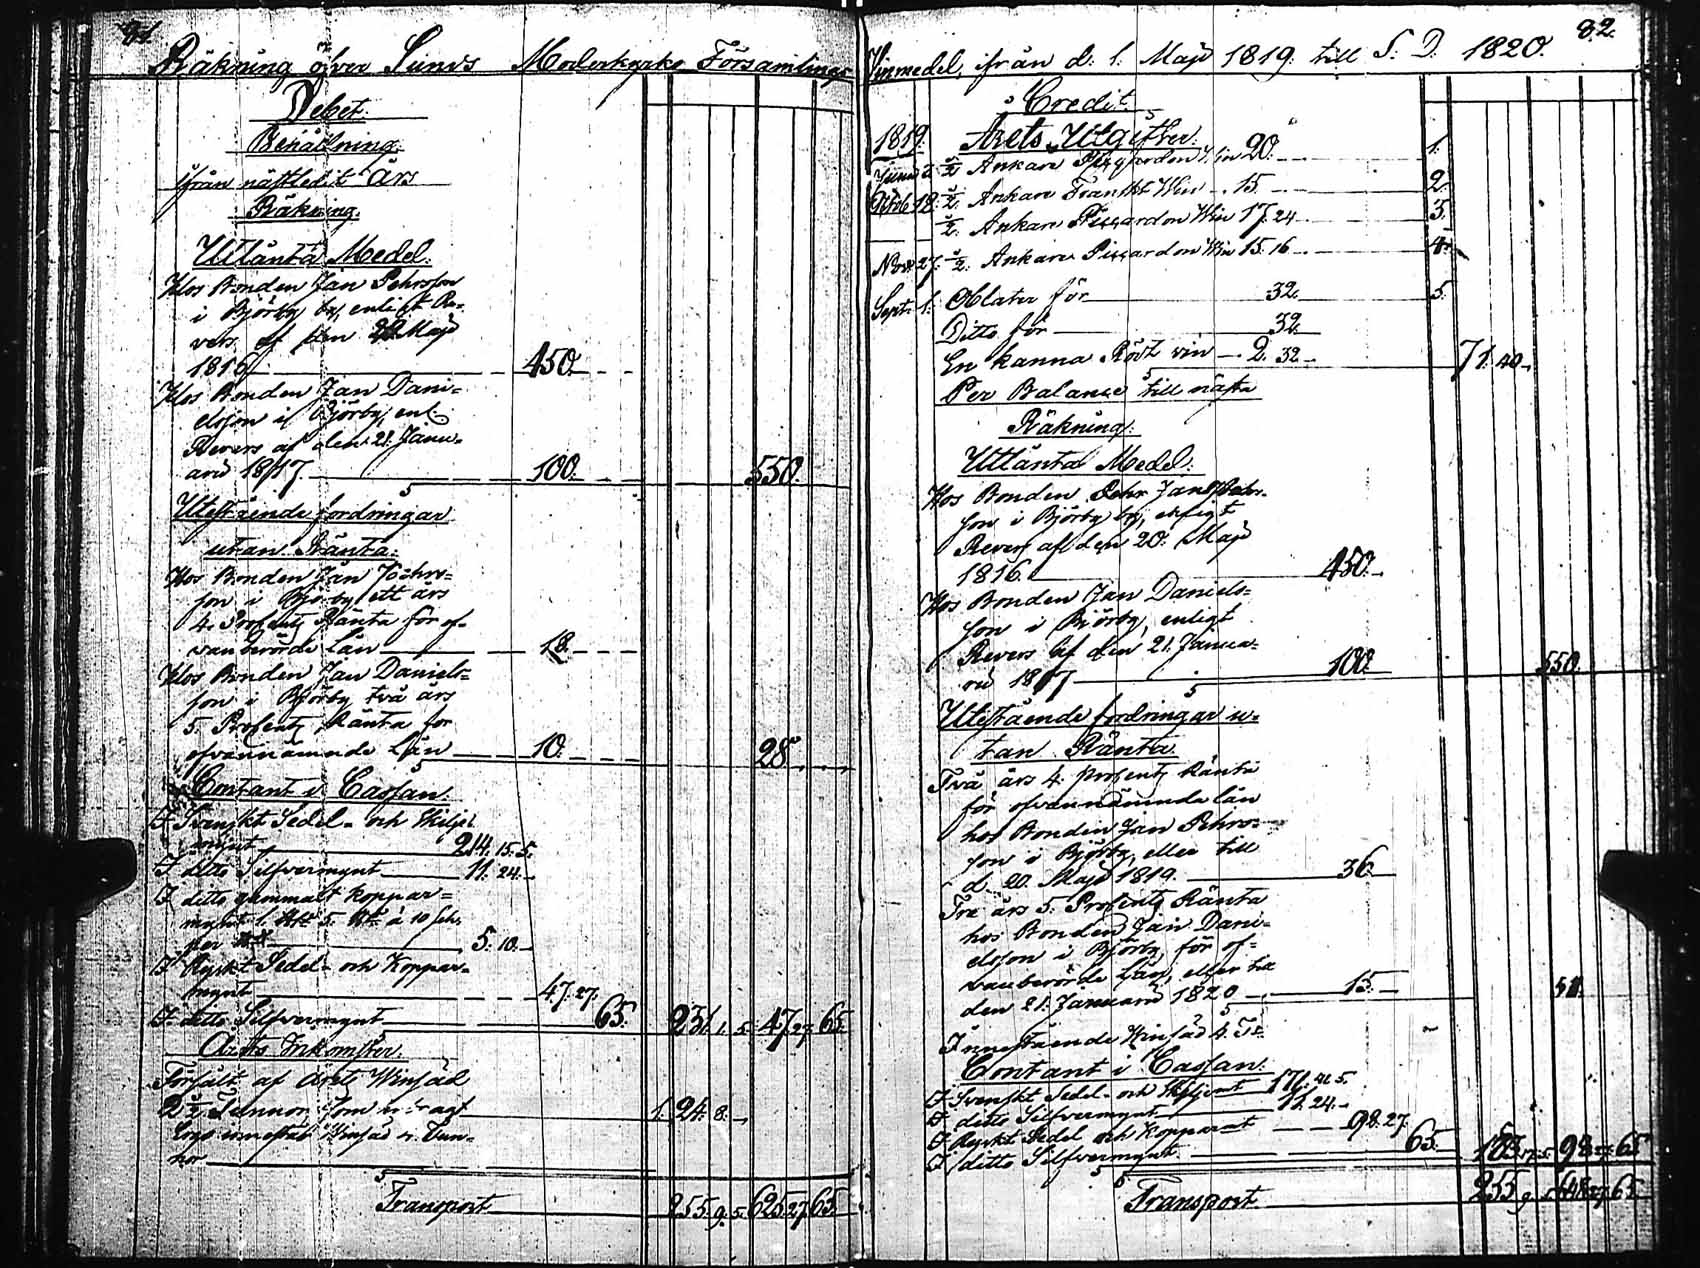 81.
Räkning över Sunds Moderkyrko Församlings
Debet.
Behållning.
ifrån nästledit Års
Räkning.
Utlånta Medel.
Hos Bonden Jan Pehrsson
i Björby by, enligt Re-
vers af den 20 Maji
1816 450.
Hos Bonden Jan Dani-
elsson i Björby, enl.
Revers af den 21. Janu-
arii 1817. 100. 550.
Utestående fordringar
utan Ränta.
Hos Bonden Jan Pehrs-
son i Björby ett års
4. Procents Ränta för of-
vanberörde Lån 18.
Hos Bonden Jan Daniels-
son i Björby två års
5. Procents Ränta för
ofvannämnde Lån 10. 28
Contant i Cassan.
I Svenskt Sedel- och Skilje-
mynt 214. 15. 5.
I ditto Silfvermynt 11. 24.
I ditto gammalt koppar-
mynt 1. 5. à 10 sch.
per 5. 10.
I Ryskt Sedel- och Koppar-
mynt 47. 27.
I ditto Silfvermynt 65. 231. 1. 5. 47. 27. 65.
Årets Inkomster.
Försålt af Årets Winsäd
2 1/2 Tunnor, som 1. 24. 8.
innestår Winsäd 4. Tun-
nor
Transport 255. 9. 5. 625. 27. 65.
82.
Vinmedel, ifrån d. 1. Maji 1819. till S. D. 1820.
Credit.
1819. Årets Utgifter.
1/2 Ankare Win 20. 1.
Octob 18. 1/2. Ankare Franskt Win 15. 2.
1/2. Ankare Piccardon Win 17. 24 3.
Nov. 27. 1/2. Ankare Piccardon Win 15. 16 4.
Sept. 1. Oblater för 32. 5.
Ditto för 32.
En kanna Rödt vin 2. 32 71. 40.
Per Balance till nästa
Räkning.
Utlånta Medel.
Hos Bonden Jan Pehrs-
son i Björby by, enligt
Revers af den 20. Maji
1816. 450.
Hos Bonden Jan Daniels-
son i Björby, enligt
Revers af den 21. Janua-
rii 1817 100. 550.
Utestående fordringar u-
tan Ränta.
Två års 4. procents Ränta
för ofvannämnda lån
hos Bonden Jan Pehrs-
son i Björby, eller till
d. 20. Maji 1819. 36.
Tre års 5. Procents Ränta
hos Bonden Jan Dani-
elsson i Björby för of-
vanberörde Lån, eller till
den 21. Januarii 1820 15. 51.
Innestående Winsäd 4. Tr.
Contant i Cassan.
I Svenskt Sedel- och Skiljemynt 171. 41. 5.
I ditto Silfvermynt 11. 24.
I Ryskt Sedel och Kopparmynt 98. 27.
I ditto Silfvermynt. 65. 183. 17. 5. 98. 27. 65
Transport 255. 9. 65.